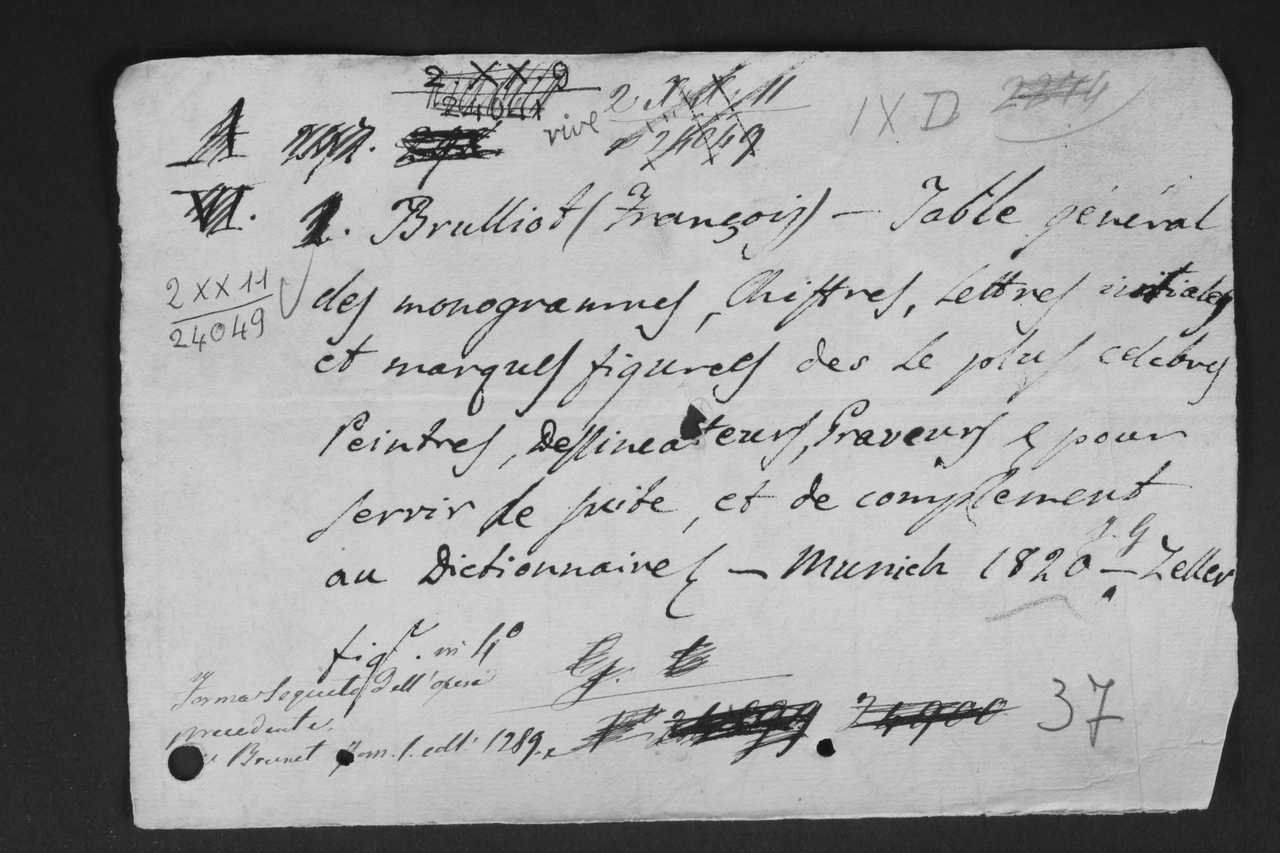 2. XX 9
24041
vive
2. X X. 11
24049
IX D
2874
VI. 1. Brulliot (François) — Table général
2 XX 11
24049
des monogrammes, Chiffres, Lettres initiales
et marques figurees des le plus celebres
Peintres, Dessinateurs, Graveurs & pour
servir de suite, et de complement
au Dictionnaire & — Munich 1820 — Zeller
fig. in 4º
Forma Seguito dell'opera
precedente.
Brunet Tom. 1. col. 1289.
24899 24900 37